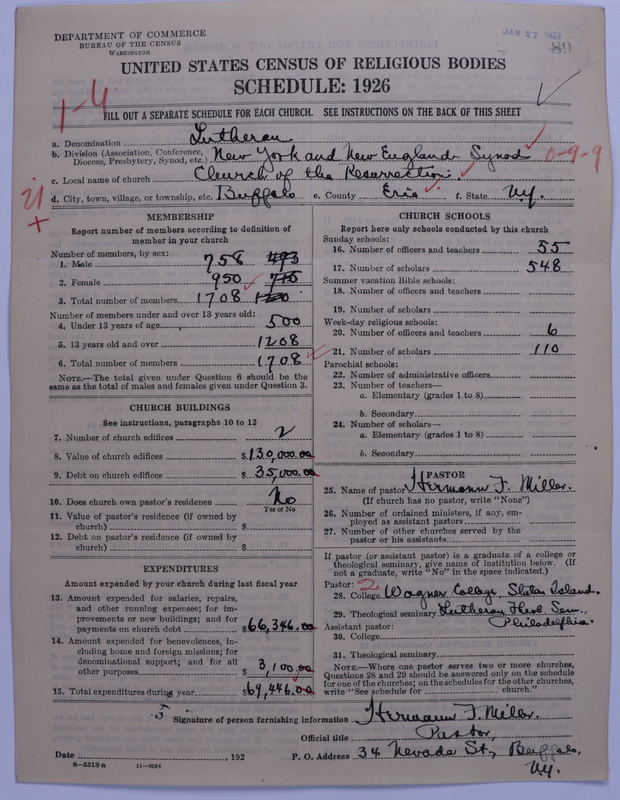 DEPARTMENT OF COMMERCE
BUREAU OF THE CENSUS
WASHINGTON
JAN 27
89
UNITED STATES CENSUS OF RELIGIOUS BODIES
SCHEDULE: 1926
1-4
FILL OUT A SEPARATE SCHEDULE FOR EACH CHURCH. SEE INSTRUCTIONS ON THE BACK OF THIS SHEET
a. Denomination Lutheran
b. Division (Association, Conference, Diocese, Presbytery, Synod, etc.) New York and New England Synod 0-9-9
c. Local name of church Church of the Resurrection.
d. City, town, village, or township, etc. Buffalo e. County Erie f. State N.Y.
MEMBERSHIP
Report number of members according to definition of
member in your church
Number of members, by sex:
1. Male 758 493
2. Female 950 715
3. Total number of members 1708
Number of members under and over 13 years old:
4. Under 13 years of age 500
5. 13 years old and over 1208
6. Total number of members 1708
NOTE.—The total given under Question 6 should be the
same as the total of males and females given under Question 3.
CHURCH BUILDINGS
See instructions, paragraphs 10 to 12
7. Number of church edifices 2
8. Value of church edifices $130,000.00
9. Debt on church edifices $35,000.00
10. Does church own pastor's residence No
Yes or No
11. Value of pastor's residence (if owned by
church) $
12. Debt on pastor's residence (if owned by
church) $
EXPENDITURES
Amount expended by your church during last fiscal year
13. Amount expended for salaries, repairs,
and other running expenses; for im-
provements or new buildings; and for
payments on church debt $66,346.00
14. Amount expended for benevolences, in-
cluding home and foreign missions; for
denominational support; and for all
other purposes $3,100.00
15. Total expenditures during year $69,446.00
CHURCH SCHOOLS
Report here only schools conducted by this church
Sunday schools:
16. Number of officers and teachers 55
17. Number of scholars 548
Summer vacation Bible schools:
18. Number of officers and teachers
19. Number of scholars
Week-day religious schools:
20. Number of officers and teachers 6
21. Number of scholars 110
Parochial schools:
22. Number of administrative officers
23. Number of teachers—
a. Elementary (grades 1 to 8)
b. Secondary
24. Number of scholars—
a. Elementary (grades 1 to 8)
b. Secondary
PASTOR
25. Name of pastor Hermann F. Miller.
(If church has no pastor, write "None")
26. Number of ordained ministers, if any, em-
ployed as assistant pastors
27. Number of other churches served by the
pastor or his assistants
If pastor (or assistant pastor) is a graduate of a college or
theological seminary, give name of institution below. (If
not a graduate, write "No" in the space indicated.)
Pastor: 2
28. College Wagner College, Staten Island.
29. Theological seminary Lutheran Theol. Sem.,
Philadelphia.
Assistant pastor:
30. College
31. Theological seminary
NOTE.—Where one pastor serves two or more churches,
Questions 28 and 29 should be answered only on the schedule
for one of the churches; on the schedules for the other churches,
write "See schedule for church."
5 Signature of person furnishing information Hermann F. Miller.
Official title Pastor,
Date , 192
P. O. Address 34 Nevada St., Buffalo,
N.Y.
8—5519 a 11—9034